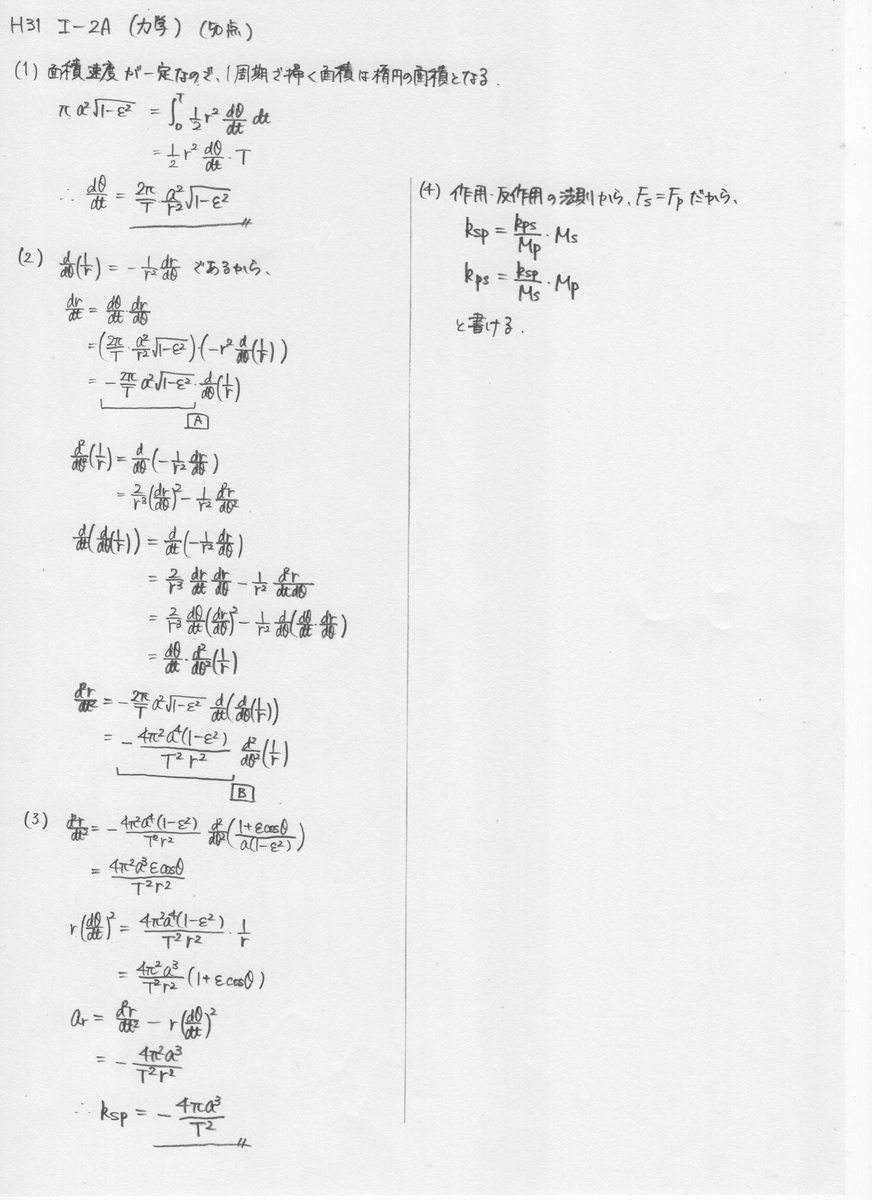 H31 I-2A (力学) (50点)
(1) 面積速度が一定なので、1周期で掃く面積は楕円の面積となる.
πa²√(1-ε²) = ∫₀ᵀ 1/2 r² dθ/dt dt
= 1/2 r² dθ/dt · T
∴ dθ/dt = 2π/T a²/r² √(1-ε²)
(2) d/dθ(1/r) = -1/r² dr/dθ であるから、
dr/dt = dθ/dt · dr/dθ
= (2π/T · a²/r² √(1-ε²)) · (-r² d/dθ(1/r))
= -2π/T a²√(1-ε²) · d/dθ(1/r)
A
d²/dθ²(1/r) = d/dθ(-1/r² dr/dθ)
= 2/r³ (dr/dθ)² - 1/r² d²r/dθ²
d/dt(d/dθ(1/r)) = d/dt(-1/r² dr/dθ)
= 2/r³ dr/dt dr/dθ - 1/r² d²r/dtdθ
= 2/r³ dθ/dt (dr/dθ)² - 1/r² d/dθ(dθ/dt · dr/dθ)
= dθ/dt · d²/dθ²(1/r)
d²r/dt² = -2π/T a²√(1-ε²) d/dt(d/dθ(1/r))
= -4π²a⁴(1-ε²)/T²r² d²/dθ²(1/r)
B
(3) d²r/dt² = -4π²a⁴(1-ε²)/T²r² d²/dθ²((1+εcosθ)/a(1-ε²))
= 4π²a³εcosθ/T²r²
r(dθ/dt)² = 4π²a⁴(1-ε²)/T²r² · 1/r
= 4π²a³/T²r² (1+εcosθ)
ar = d²r/dt² - r(dθ/dt)²
= -4π²a³/T²r²
∴ ksp = -4πa³/T²
(4) 作用・反作用の法則から、Fs=Fpだから、
ksp = kps/Mp · Ms
kps = ksp/Ms · Mp
と書ける.